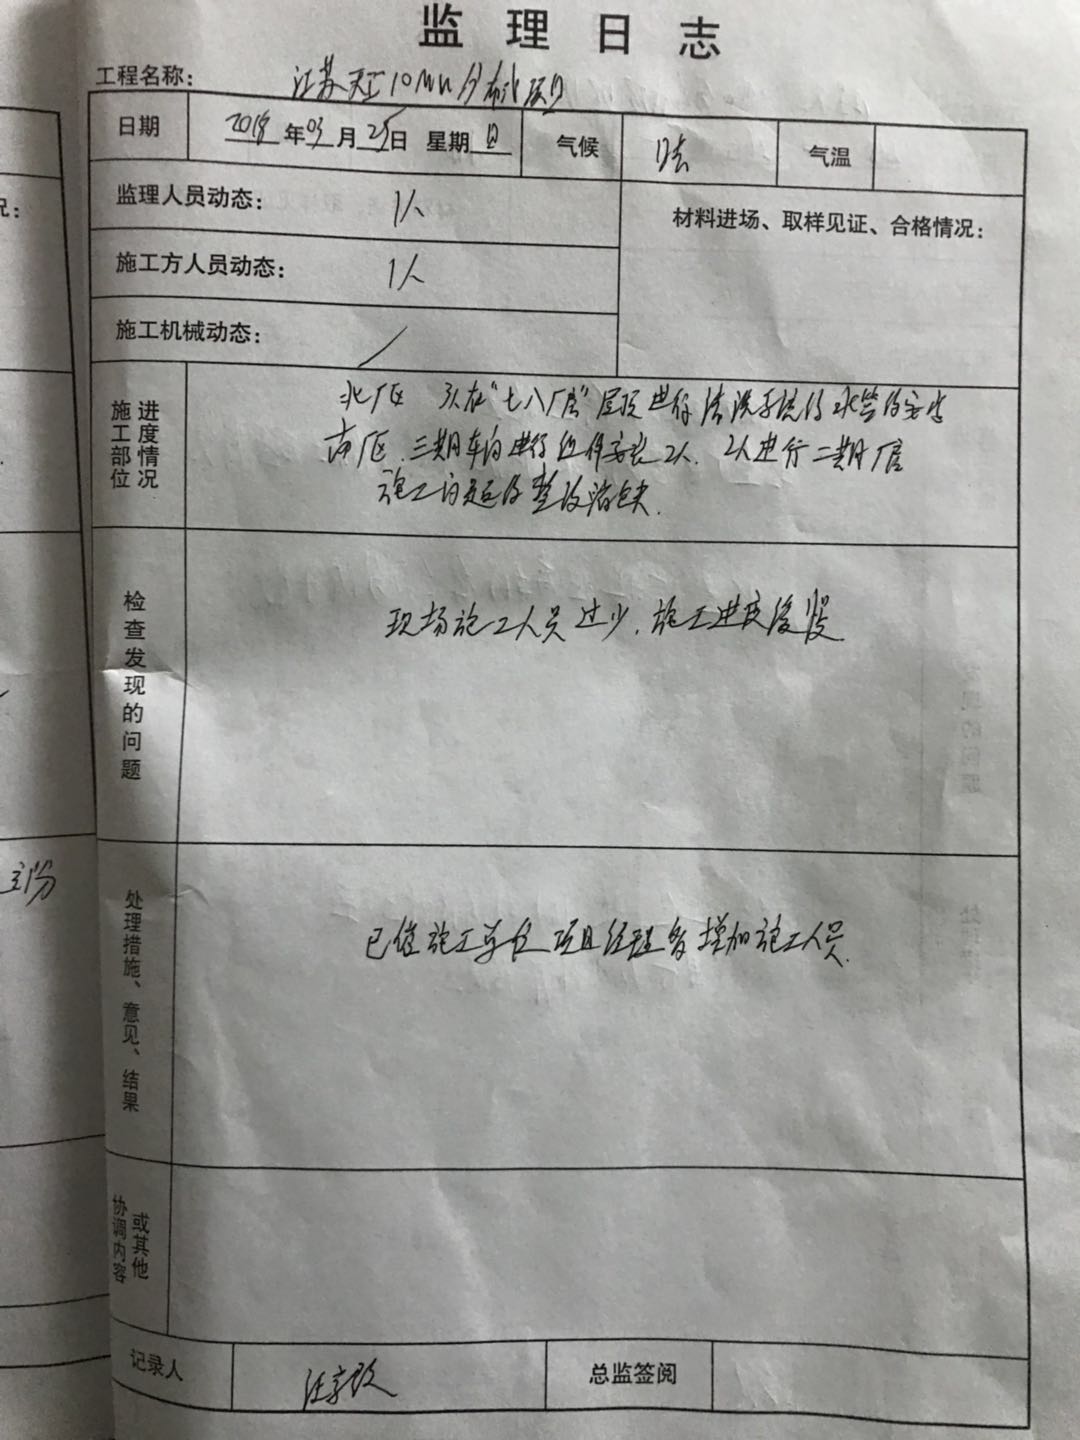 监理日志
工程名称: 江苏天工10MW分布式项目
日期 2018年03月25日 星期日 气候 晴 气温
监理人员动态: 1人
材料进场、取样见证、合格情况:
施工方人员动态: 1人
施工机械动态: /
施工部位进度情况
北厂区 3人在"七八厂房"屋顶进行清洗系统的水管的安装
南厂区.三期车间进行组件安装2人. 2人进行二期厂房
施工问题的整改消缺.
检查发现的问题
现场施工人员过少.施工进度缓慢
处理措施、意见、结果
已催施工单位项目经理多增加施工人员.
协调内容或其他
记录人 汪 总监签阅
况: